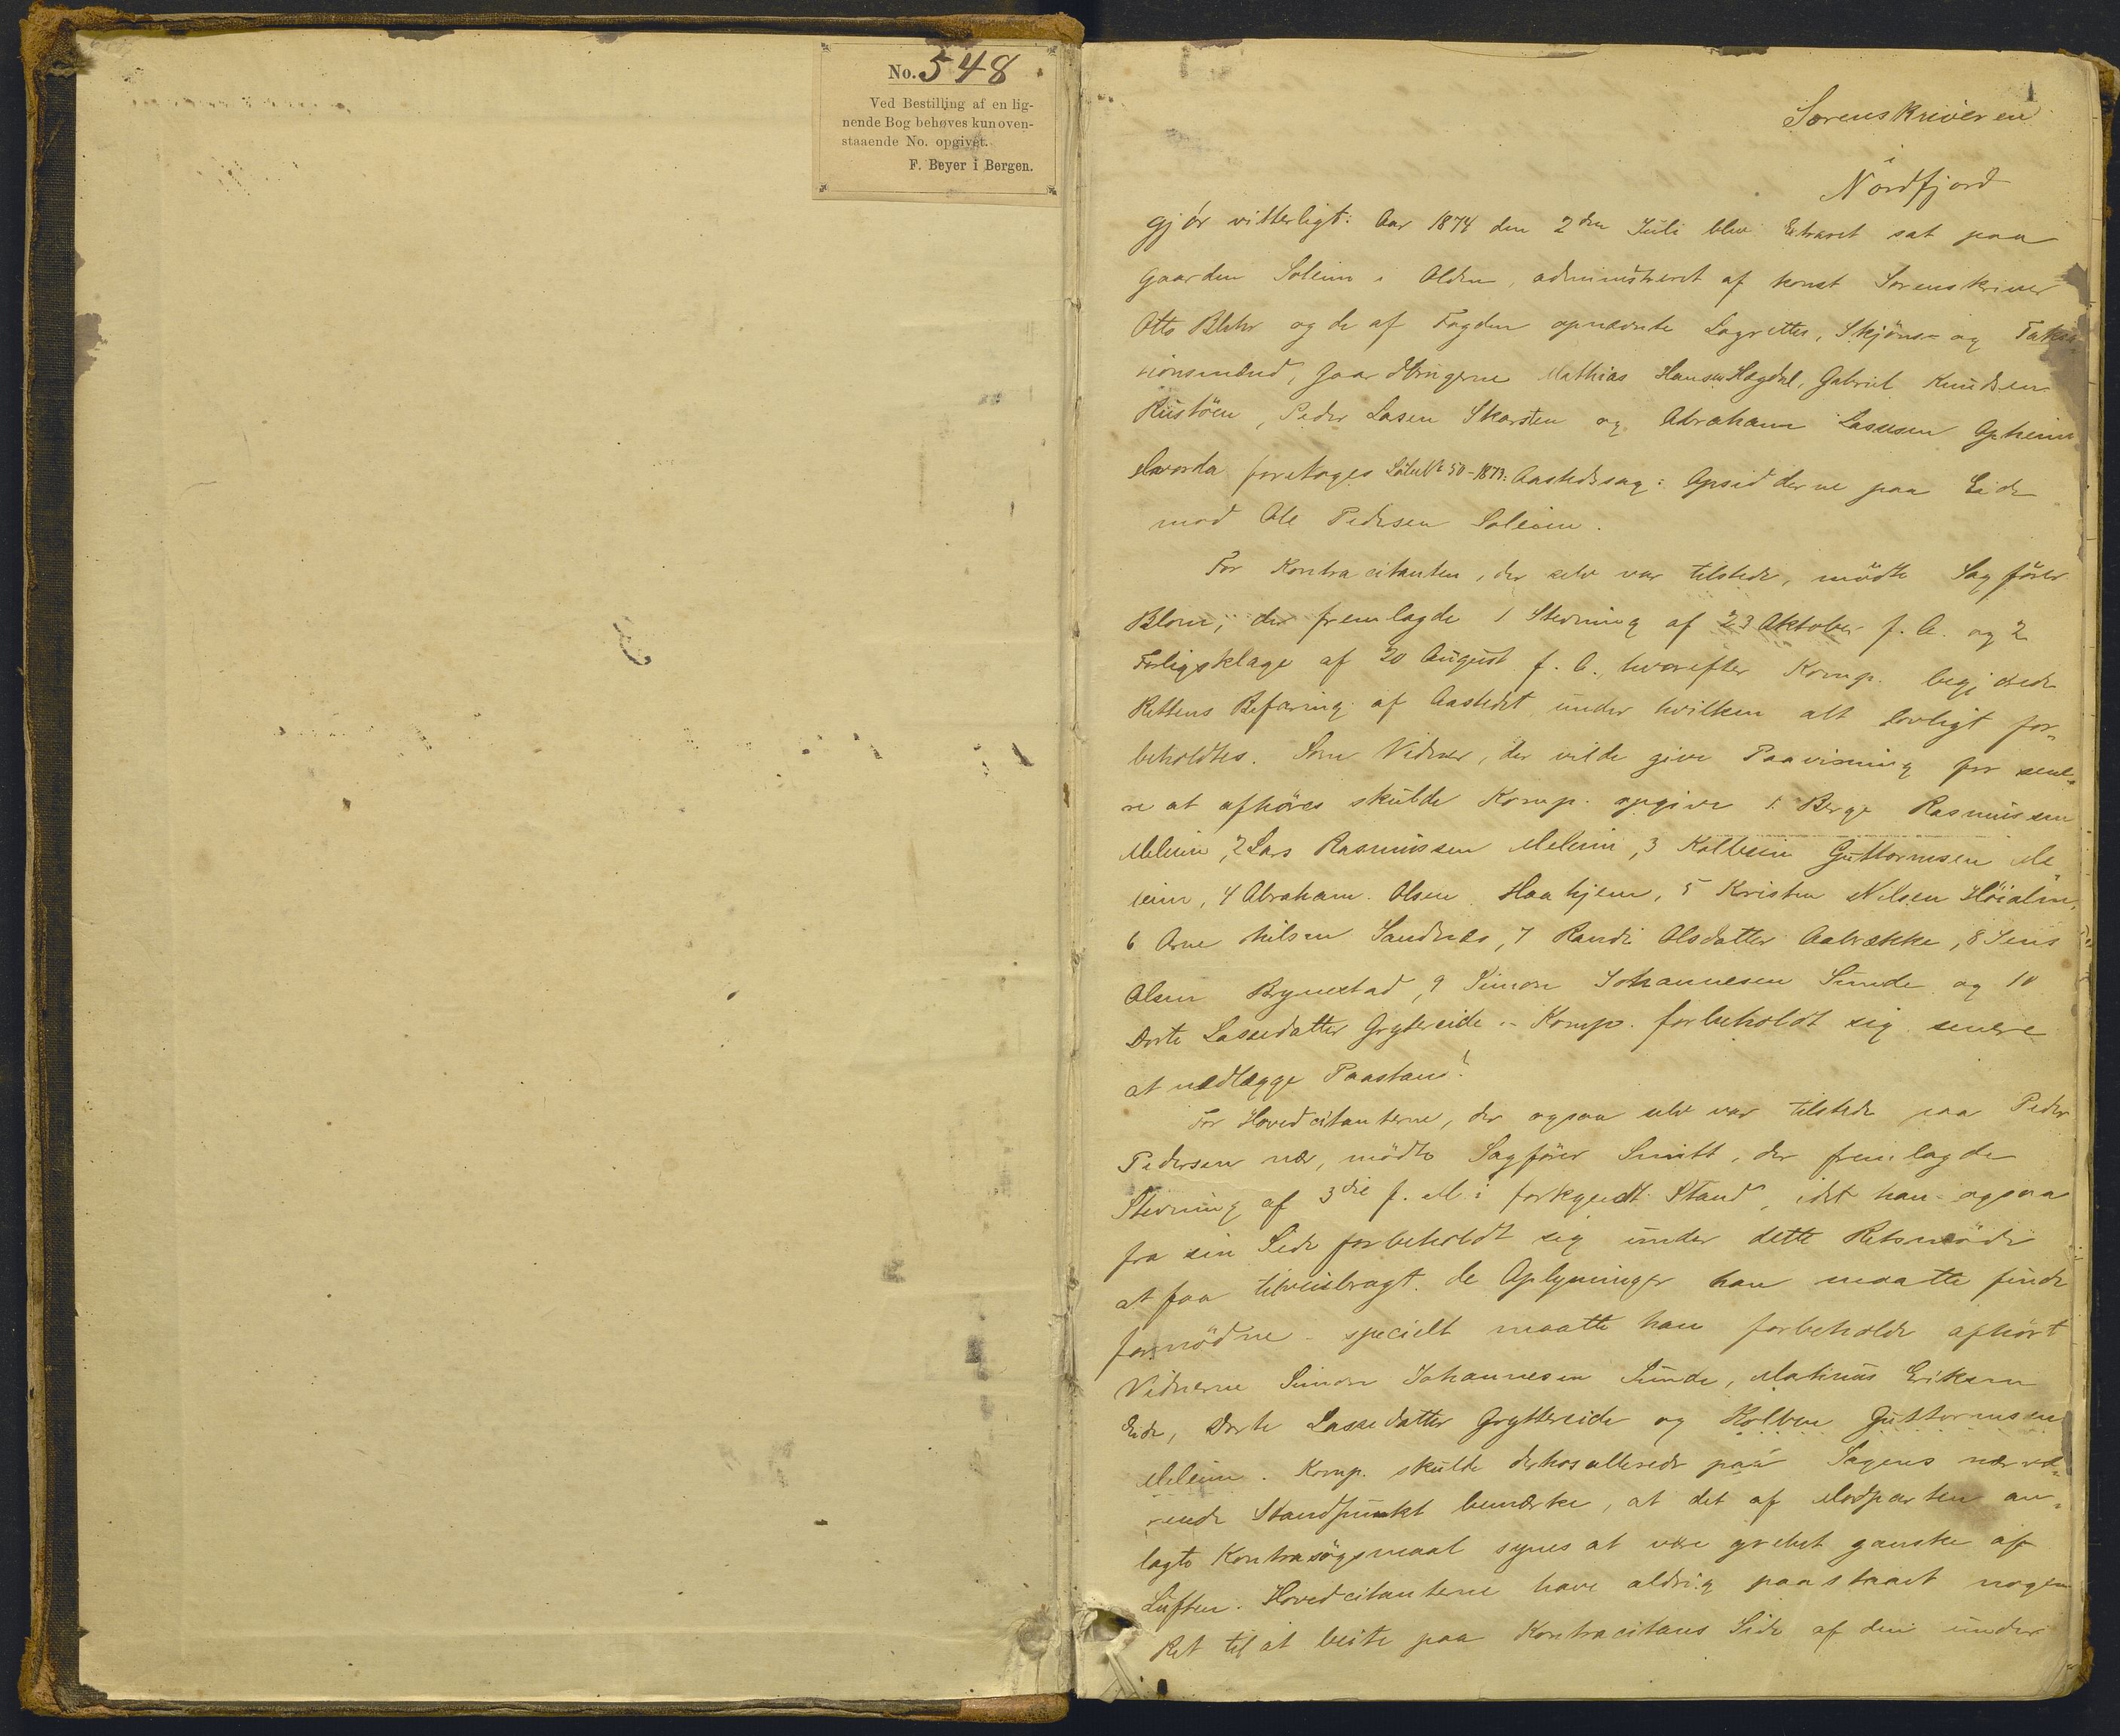 No. 548
Ved Bestilling af en lig-
nende Bog behøves kun oven-
staaende No. opgivet.
F. Beyer i Bergen.
1
Sorenskriveren
i
Nordfjord
Gjör vitterligt: Aar 1874 den 2den Juli blev Extraret sat paa
Gaarden Soleim i Olden, administreret af konst Sorenskriver
Otto Blehr og de af Fogden opnævnte Lagrettes, Skjöns- og Taka-
tionsmænd, Gaardbrugerne Mathias Hansen Hagdal, Gabriel Knudsen
Rustöen, Peder Lasen Skarsten og Abraham Lassesen Opheim
hvorda foretoges Löbe No 50-1873: Aastedssag: Opsidderne paa Eide
mod Ole Pedersen Soleim.
For Kontracitanten, der selv var tilstede, mödte Sagförer
Blom, der fremlagde 1 Stevning af 23 Oktober f. A. og 2
Forligsklage af 20 August f. A., hvorefter Komp. begjærede
Rettens Befaring af Aastedet under hvilken alt lovligt for-
beholdtes. Som Vidner, der vilde give Paavisning for sene-
re at afhöres skulde Komp. opgive 1. Berge Rasmussen
Meleim, 2 Lars Rasmussen Meleim, 3 Kolbein Guttormsen Me
leim, 4 Abraham Olsen Haahjem, 5 Kristen Nilsen Höialm,
6 Arne Nilsen Sandnæs, 7 Randi Olsdatter Aabrække, 8 Jens
Olsen Brynestad, 9 Simon Johannesen Sunde og 10
Dorte Lassedatter Grytereide. - Komp. forbeholdt sig senere
at nedlægge Paastand.
For Hovedcitanterne, der ogsaa selv var tilstede paa Peder
Pedersen nær, mödte Sagförer Smitt, der fremlagde
Stevning af 3die f. M. i forkyndt Stand, idet han ogsaa
fra sin Side forbeholdt sig under dette Retsmöde
at faa tilveiebragt de Oplysninger han maatte finde
fornödne - specielt maatte han forbeholde afhört
Vidnerne Simon Johannesen Sunde, Mathias Eriksen
Eide, Dorte Lassedatter Gryttereide og Kolben Guttormsen
Meleim. Komp. skulde derhos allerede paa Sagens nærvæ-
rende Standpunkt bemærke, at det af Modparten an-
lagte Kontrasögsmaal synes at være grebet ganske af
Luften. Hovedcitanterne have aldrig paastaaet nogen
Ret til at beite paa Kontracitans Side af den under